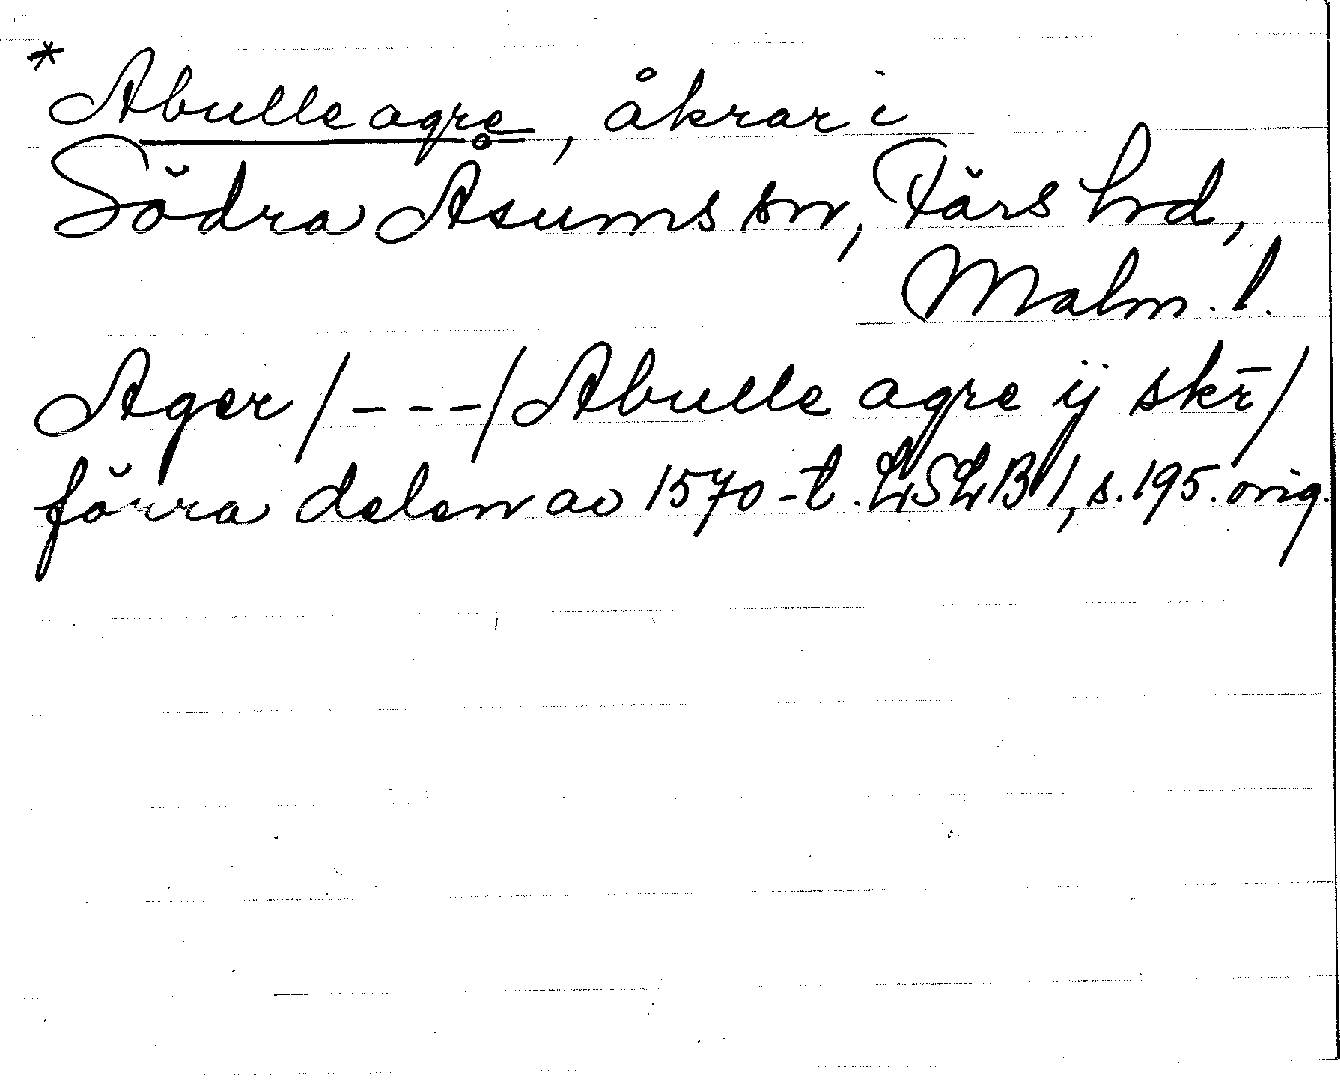 * Abulle agre, åkrar i
Södra Åsums sn, Färs hd,
Malm. l.
Ager /---/ Abulle agre ij skr̄/
förra delen av 1570-t. LSLB I, s. 195. orig.